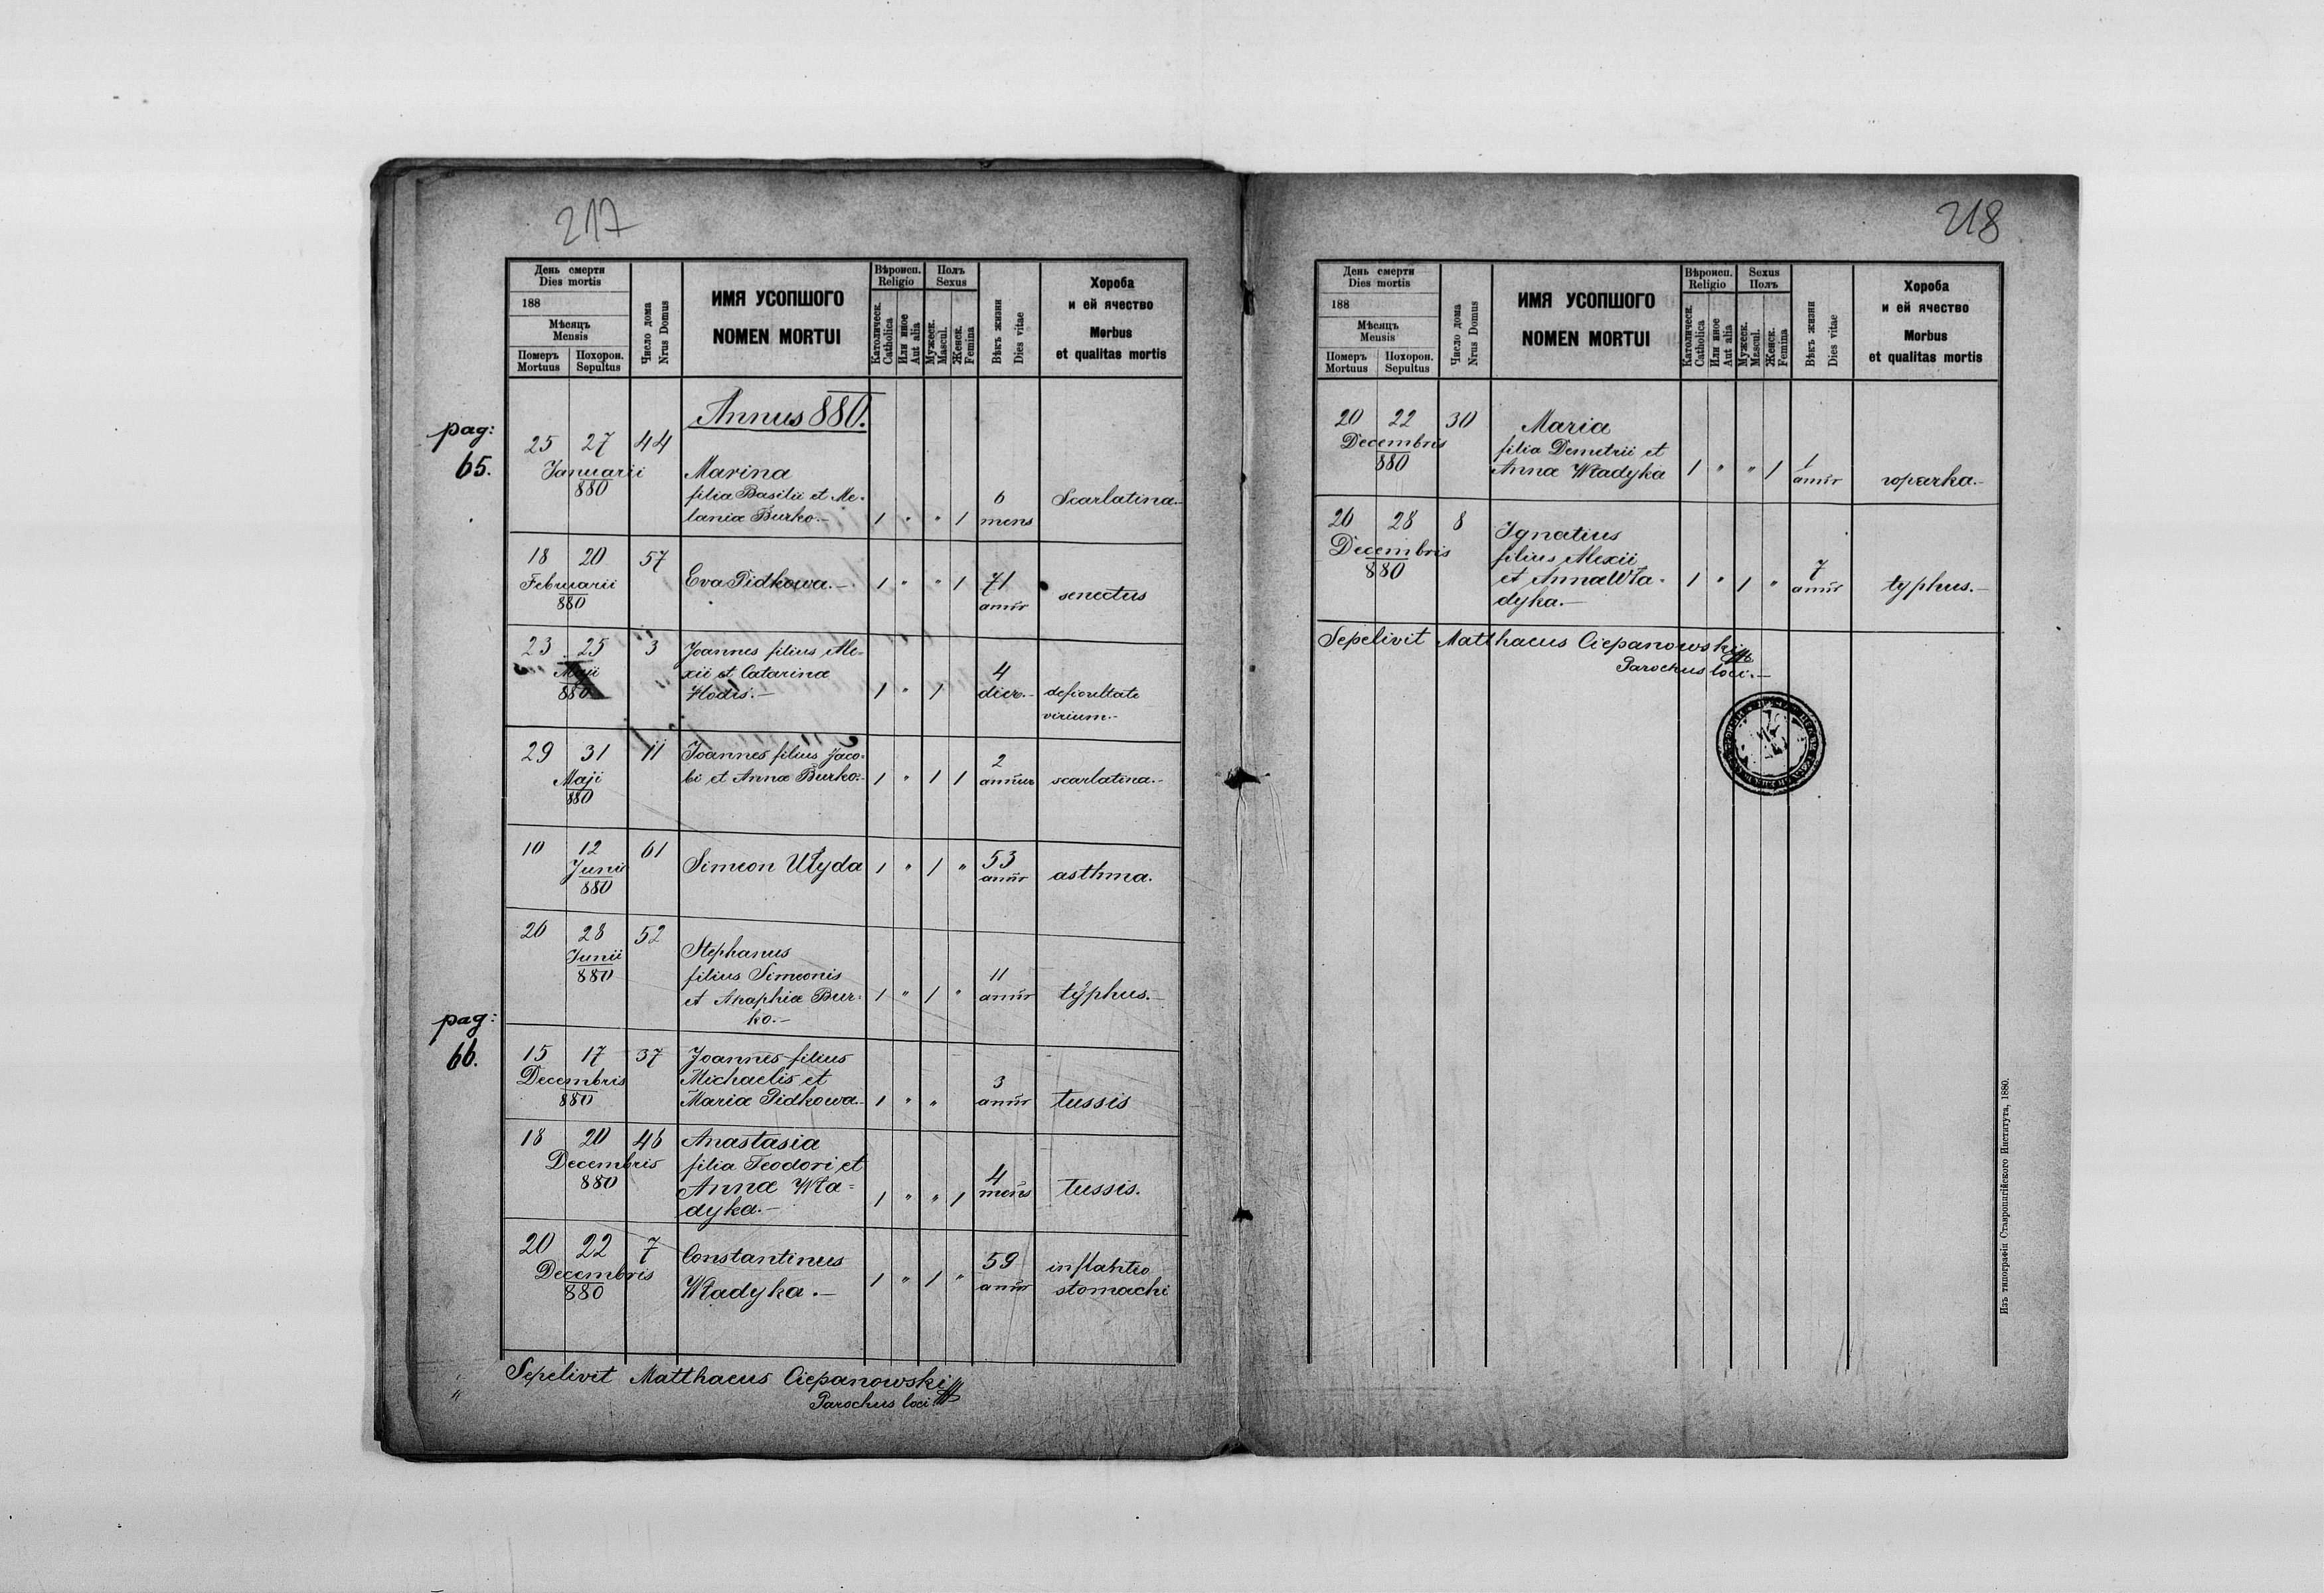 217
День смерти
Dies mortis
188
Мѣсяцъ
Mensis
Померъ
Mortuus
Похорон.
Sepultus
Число дома
Nrus Domus
ИМЯ УСОПШОГО
NOMEN MORTUI
Вѣроисп.
Religio
Католическ.
Catholica
Или иное
Aut alia
Полъ
Sexus
Мужеск.
Mascul.
Женск.
Femina
Вѣкъ жизни
Dies vitae
Хороба
и ей ячество
Morbus
et qualitas mortis
Annus 880.
pag:
65.
25 27 44
Januarii
880
Marina
filia Basilii et Me-
lania Burko.-
1 " " 1
6
mens
Scarlatina.-
18 20 57
Februarii
880
Eva Pidkowa.-
1 " " 1
71
annor
senectus
23 25 3
Maji
880
Joannes filius Ale-
xii et Catarina
Hodis.-
1 " 1
4
dier.-
virium.-
29 31 11
Maji
880
Joannes filius Jaco-
bi et Anna Burko.-
1 " 1 1
2
scarlatina.-
10 12 61
Junii
880
Simeon Ułyda
1 " 1 "
53
annor
asthma.
26 28 52
Junii
880
Stephanus
filius Simeonis
et Ahaphia Bur-
ko.-
1 " 1 "
11
annor
typhus.-
pag:
66.
15 17 37
Decembris
880
Joannes filius
Michaelis et
Maria Pidkowa.-
1 " "
3
annor
tussis
18 20 46
Decembris
880
Anastasia
filia Teodori et
Anna Wła=
dyka.-
1 " " 1
4
mens
tussis.
20 22 7
Decembris
880
Constantinus
Władyka.-
1 " 1 "
59
annor
stomachi
Sepelivit Matthaeus Ciepanowski
Parochus loci
218
День смерти
Dies mortis
188
Мѣсяцъ
Mensis
Померъ
Mortuus
Похорон.
Sepultus
Число дома
Nrus Domus
ИМЯ УСОПШОГО
NOMEN MORTUI
Вѣроисп.
Religio
Католическ.
Catholica
Или иное
Aut alia
Sexus
Полъ
Мужеск.
Mascul.
Женск.
Femina
Вѣкъ жизни
Dies vitae
Хороба
и ей ячество
Morbus
et qualitas mortis
20 22 30
Decembris
880
Maria
filia Demetrii et
Anna Władyka
1 " " 1
1
annor
26 28 8
Decembris
880
Ignatius
filius Alexii
et Anna Wła-
dyka.-
1 " 1 "
7
annor
typhus.-
Sepelivit Matthaeus Ciepanowski
Parochus loci.-
Изъ типографіи Ставропигійского Института, 1880.